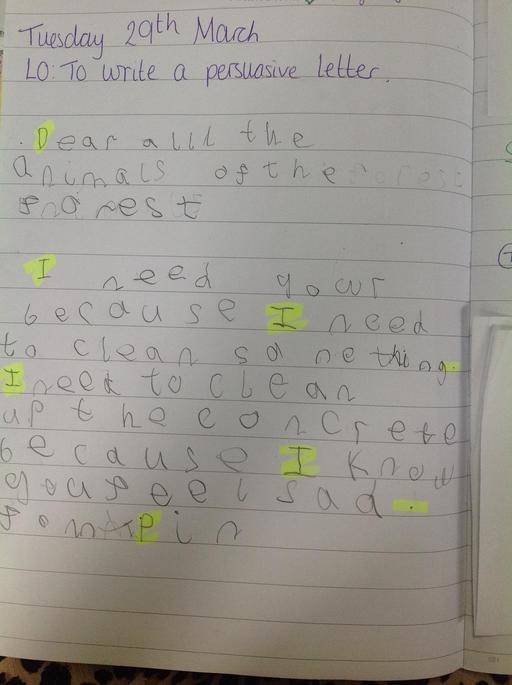 Tuesday 29th March
LO: To write a persuasive letter.
Dear alll the
animals of the
I need your
because I need
to clean some thing.
I need to clean
up the concrete
because I know
you feel sad.